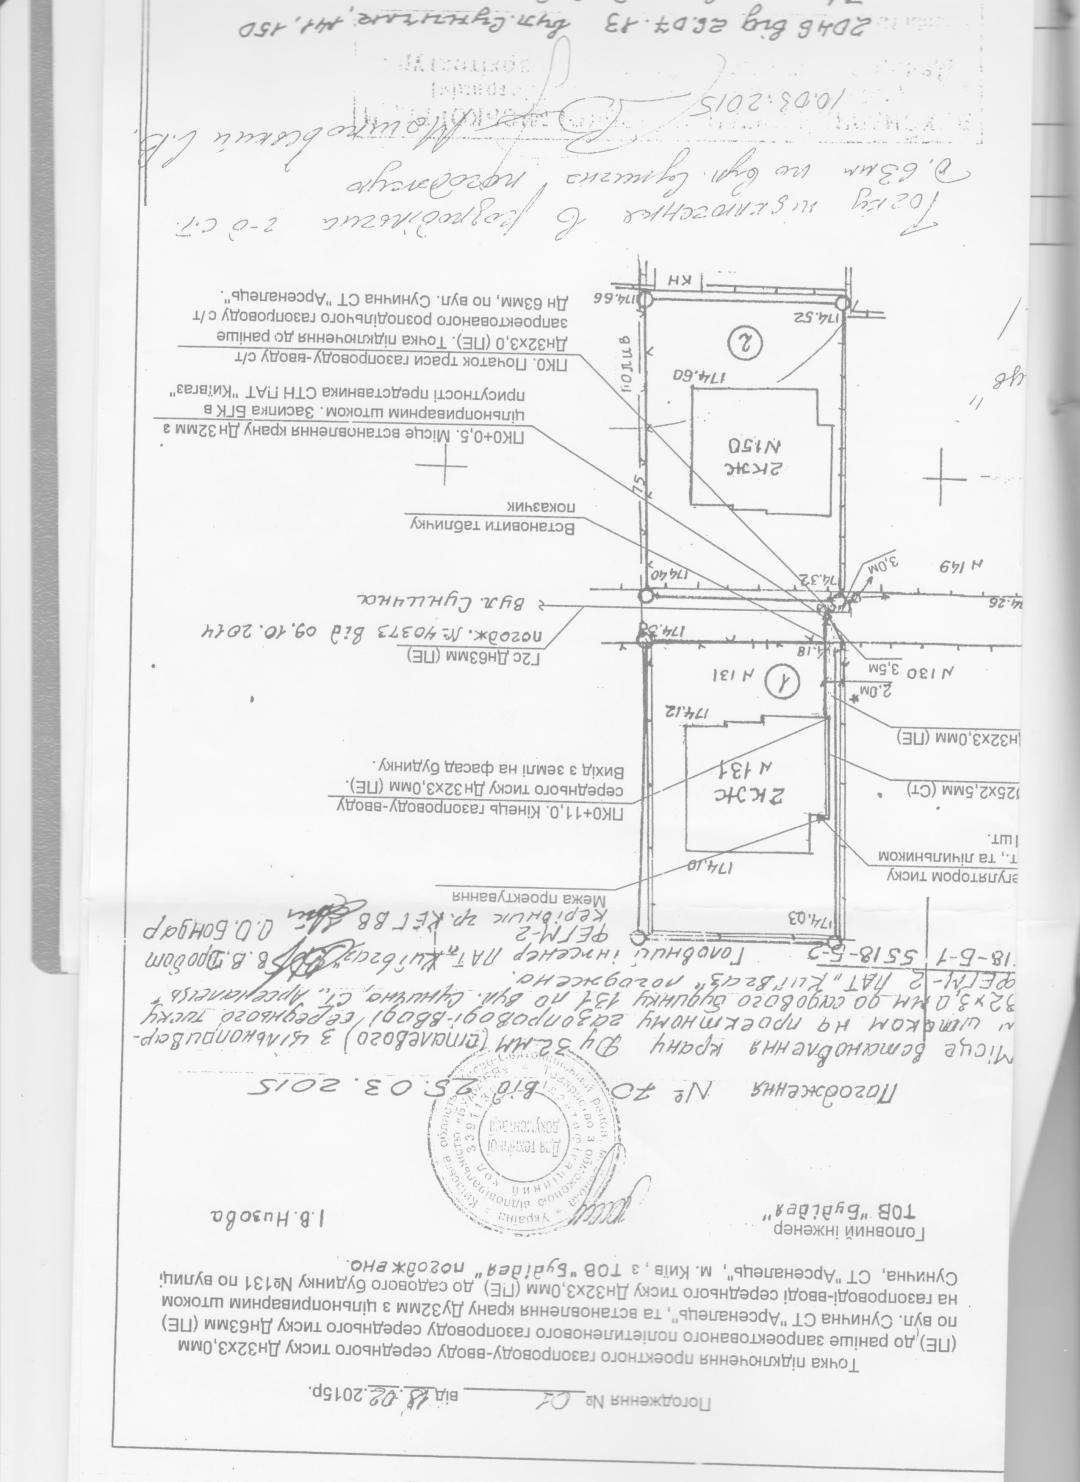 Погодження № 01 від 18.02.2015р.
Точка підключення проектного газопроводу-вводу середнього тиску Дн32х3,0мм
(ПЕ) до раніше запроектованого поліетиленового газопроводу середнього тиску Дн63мм (ПЕ)
по вул. Сунична СТ "Арсеналець", та встановлення крану Ду32мм з цільноприварним штоком
на газопроводі-вводі середнього тиску Дн32х3,0мм (ПЕ) до садового будинку №131 по вулиці
Сунична, СТ "Арсеналець", м. Київ, з ТОВ "Будідея" погоджено.
Головний інженер
ТОВ "Будідея"
І.В.Низова
Для технічної
документації
Погодження № 70 від 25.03.2015
Місце встановлення крану Ду 32мм (сталевого) з цільнопривар-
м штоком на проектному газопроводі-вводі середнього тиску
32х3,0мм до садового будинку 131 по вул. Сунична, СТ „Арсеналець"
ФЕГМ-2 ПАТ „Київгаз" погоджено.
18-Б-1 5518-Б-2
Головний інженер ПАТ „Київгаз"
ФЕГМ-2
Керівник гр. КЕГ ВВ О.О.Бондар
174.03
Межа проектування
егулятором тиску
т., та лічильником
1шт.
174.10
25х2,5мм (Ст)
2КЖ
N131
ПК0+11,0. Кінець газопроводу-вводу
середнього тиску Дн32х3,0мм (ПЕ).
Вихід з землі на фасад будинку.
н32х3,0мм (ПЕ)
174.12
2,0м
1
N131
N130
3,5м
4.18
Г2с Дн63мм (ПЕ)
погодж. № 40373 від 09.10.2014
Вул. Сунична
4.26
174.32
174.40
N149
3,0м
Встановити табличку
показчик
75
2КЖ
N150
ПК0+0,5. Місце встановлення крану Дн32мм з
цільноприварним штоком. Засипка БГК в
присутності представника СТН ПАТ "Київгаз"
174.60
полив
2
ПК0. Початок траси газопроводу-вводу с/т
Дн32х3,0 (ПЕ). Точка підключення до раніше
запроектованого розподільчого газопроводу с/т
Дн 63мм, по вул. Сунична СТ "Арсеналець".
174.52
174.66
КН
Точку підключення в розподільчий г-д с.т.
д.63мм по вул. Сунична погоджую
10.03.2015
2046 від 26.07.13 вул.Сунична, 141, 150